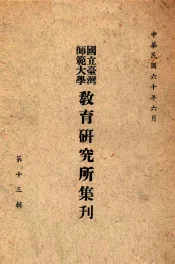 中華民國六十年六月
國立臺灣
師範大學
教育研究所集刊
第十三輯